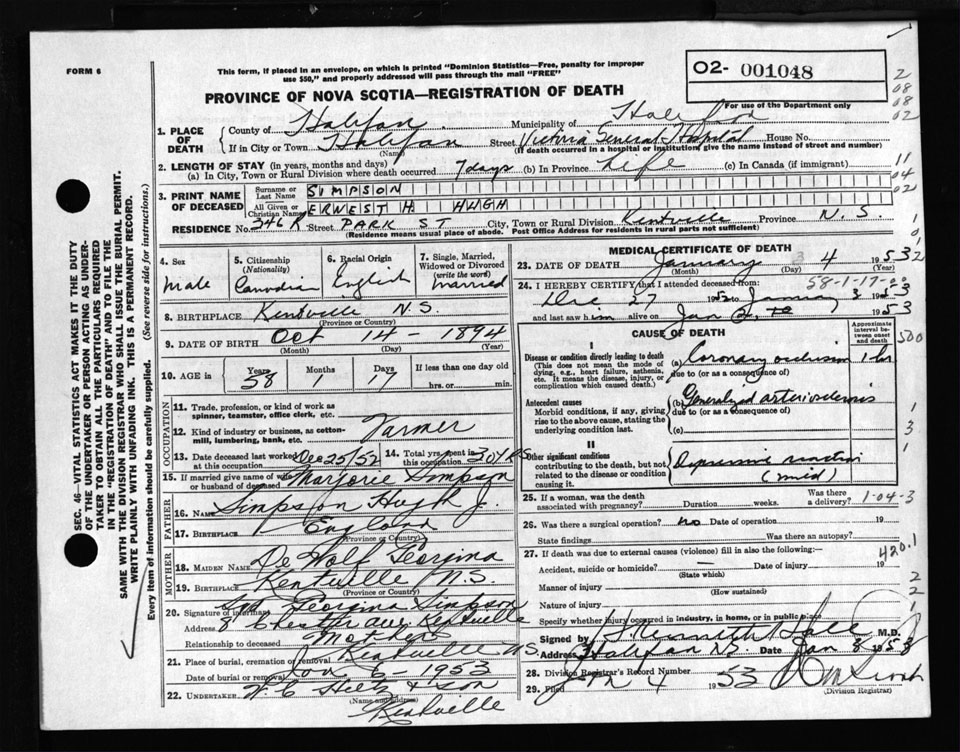 FORM 6
This form, if placed in an envelope, on which is printed "Dominion Statistics—Free, penalty for improper
use $50," and properly addressed will pass through the mail "FREE"
PROVINCE OF NOVA SCOTIA—REGISTRATION OF DEATH
O2- 001048
For use of the Department only
1. PLACE OF DEATH
County of Halifax Municipality of Halifax
If in City or Town Halifax Street Victoria General Hospital House No.
(Name) (If death occurred in a hospital or institution, give the name instead of street and number)
2. LENGTH OF STAY (in years, months and days)
(a) In City, Town or Rural Division where death occurred 7 days (b) In Province Life (c) In Canada (if immigrant)
3. PRINT NAME OF DECEASED
Surname or Last Name SIMPSON
All Given or Christian Names ERWEST H. HUGH
RESIDENCE No. 346 Street PARK ST City, Town or Rural Division Kentville Province N.S.
(Residence means usual place of abode. Post Office Address for residents in rural parts not sufficient)
4. Sex
Male
5. Citizenship
(Nationality)
Canadian
6. Racial Origin
English
7. Single, Married, Widowed or Divorced
(write the word)
Married
8. BIRTHPLACE Kentville N.S.
(Province or Country)
9. DATE OF BIRTH Oct 14 - 1894
(Month) (Day) (Year)
10. AGE in
Years 58 Months 1 Days 17
If less than one day old
hrs. or min.
OCCUPATION
11. Trade, profession, or kind of work as
spinner, teamster, office clerk, etc.
12. Kind of industry or business, as cotton-
mill, lumbering, bank, etc.
Farmer
13. Date deceased last worked at this occupation Dec 25/52
14. Total yrs. spent in this occupation 30 YRS
15. If married give name of wife or husband of deceased Marjorie Simpson
FATHER
16. NAME Simpson Hugh J.
17. BIRTHPLACE England
(Province or Country)
MOTHER
18. MAIDEN NAME De Wolf Georgina
19. BIRTHPLACE Kentville N.S.
(Province or Country)
20. Signature of informant Georgina Simpson
Address 8 Chester ave. Kentville
Relationship to deceased Mother
21. Place of burial, cremation or removal Kentville N.S.
Date of burial or removal Jan 6 1953
22. UNDERTAKER W C Hiltz & Son
(Name and Address)
Kentville
MEDICAL CERTIFICATE OF DEATH
23. DATE OF DEATH January 4 1953
(Month) (Day) (Year)
58-1-17-0
24. I HEREBY CERTIFY that I attended deceased from:
Dec 27 1952 to January 3 1953
and last saw him alive on Jan 1953
CAUSE OF DEATH
Approximate interval between onset and death
I
Disease or condition directly leading to death
(This does not mean the mode of dying, e.g., heart failure, asthenia, etc. It means the disease, injury, or complication which caused death.)
(a) Coronary occlusion 1 hr
due to (or as a consequence of)
Antecedent causes
Morbid conditions, if any, giving rise to the above cause, stating the underlying condition last.
(b) Generalized arteriosclerosis
due to (or as a consequence of)
(c)
II
Other significant conditions
contributing to the death, but not related to the disease or condition causing it.
Depressive reaction
(mild)
25. If a woman, was the death
associated with pregnancy? Duration weeks. Was there a delivery?
1-04-3
26. Was there a surgical operation? no Date of operation 19
State findings Was there an autopsy?
27. If death was due to external causes (violence) fill in also the following:—
420.1
Accident, suicide or homicide? — Date of injury 19
(State which)
Manner of injury
(How sustained)
Nature of injury
Specify whether injury occurred in industry, in home, or in public place
Signed by M.D.
Address Halifax N.S. Date Jan 8 1953
28. Division Registrar's Record Number
29. Filed 1953
(Division Registrar)
SEC. 46—VITAL STATISTICS ACT MAKES IT THE DUTY
OF THE UNDERTAKER OR PERSON ACTING AS UNDER-
TAKER TO OBTAIN ALL THE PARTICULARS REQUIRED
IN THE "REGISTRATION OF DEATH" AND TO FILE THE
SAME WITH THE DIVISION REGISTRAR WHO SHALL ISSUE THE BURIAL PERMIT.
WRITE PLAINLY WITH UNFADING INK. THIS IS A PERMANENT RECORD.
Every item of information should be carefully supplied. (See reverse side for instructions.)